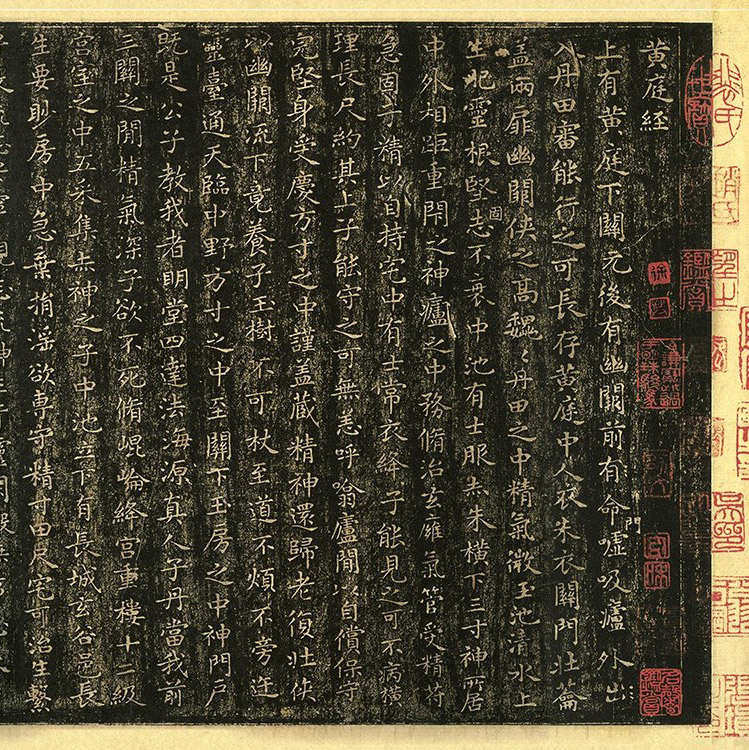 黃庭經
上有黃庭下關元後有幽闕前有命門噓吸廬外出
入丹田審能行之可長存黃庭中人衣朱衣關門壯籥
盖兩扉幽闕俠之高魏〻丹田之中精氣微玉池清水上
生肥靈根堅固志不衰中池有士服赤朱橫下三寸神所居
中外相距重閇之神廬之中務脩治玄癰氣管受精符
急固子精以自持宅中有士常衣絳子能見之可不病橫
理長尺約其上子能守之可無恙呼噏廬間以自償保守
完堅身受慶方寸之中謹盖藏精神還歸老復壯俠
以幽闕流下竟養子玉樹不可杖至道不煩不旁迕
靈臺通天臨中野方寸之中至關下玉房之中神門戶
既是公子教我者明堂四達法海源真人子丹當我前
三關之間精氣深子欲不死脩崐崘絳宮重樓十二級
宮室之中五采集赤神之子中池立下有長城玄谷邑長
生要眇房中急棄捐淫欲專守精寸田尺宅可治生繫